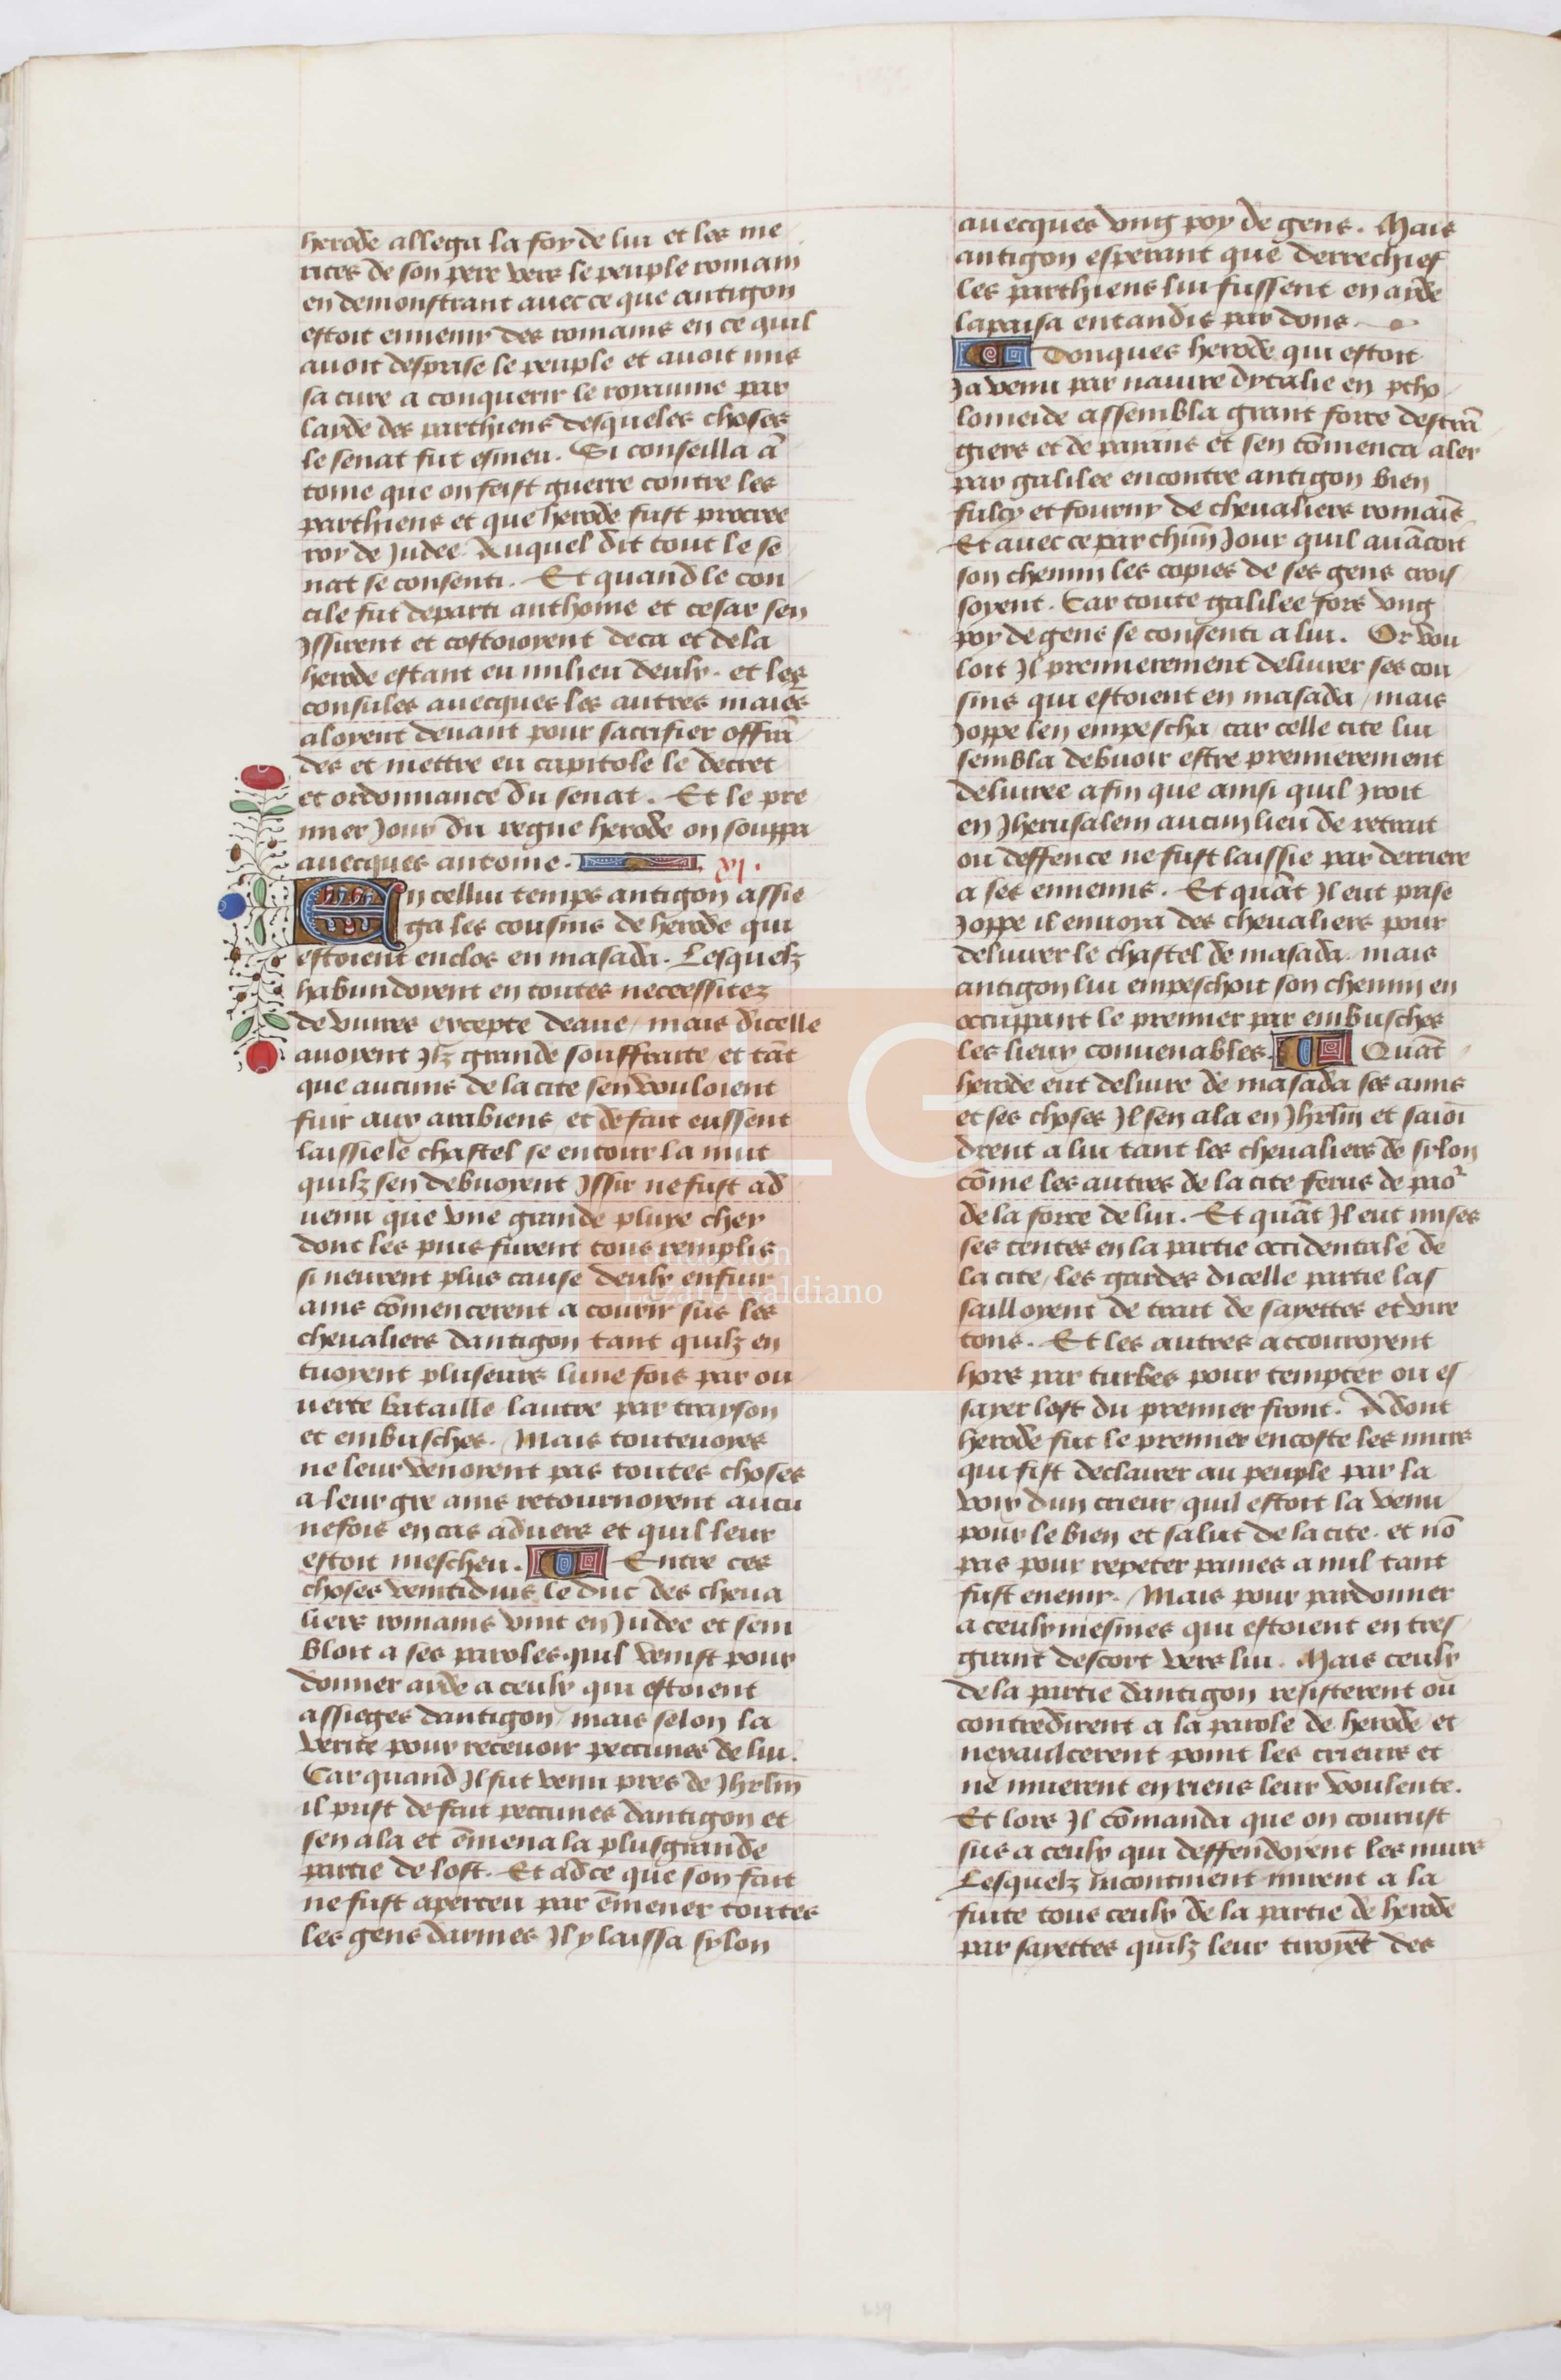 herode allega la foy de lui et les me
rites de son pere vers le peuple romain
en demonstrant auec ce que antigon
estoit ennemy des romains en ce quil
auoit desprise le peuple et auoit mis
sa cure a conquerir le royaume par
layde des parthiens desqueles choses
le senat fut esmeu. Si conseilla an̄
tome que on feist guerre contre les
parthiens et que herode fust procree
roy de Judee. Auquel dit tout le se
nat se consenti. Et quand le con
cile fut departi anthome et cesar sen
Jssirent et costoioyent deca et dela
herode estant eu milieu deulx. et les
consules auecques les autres maiēs
aloyent deuant pour sacrifier offrā
des et mettre eu capitole le decret
et ordonnance du senat. Et le pre
mier Jour du regne herode on souppa
auecques antome. XI.
En cellui temps antigon assie
ga les cousins de herode qui
estoient enclos en masada. Lesquelz
habundoyent en toutes necessitez
de viures excepte deaue / mais dicelle
auoyent Jlz grande souffraite et tāt
que aucuns de la cite sen vouloient
fuir aux arabiens et de fait eussent
laissie le chastel se entour la nuit
quilz sen debuoyent Jssir ne fust ad
uenu que vne grande pluye chey
dont les puis furent tous remplis
si neurent plus cause deulx enfuir
ains cōmencerent a courir sus les
cheualiers dantigon tant quilz en
tuoyent pluseurs lune fois par ou
uerte bataille lautre par trayson
et embusches. Mais touteuoyes
ne leur venoyent pas toutes choses
a leur gre ains retournoyent aucu
nefois en cas aduers et quil leur
estoit mescheu. Entre ces
choses ventidius le duc des cheua
liers romains vint en Judee et sem
bloit a ses paroles quil venist pour
donner ayde a ceulx qui estoient
assieges dantigon / mais selon la
verite pour receuoir peccunes de lui.
Car quand Jl fut venu pres de Jhrlm̄
il prist de fait peccunes dantigon et
sen ala et ēmena la plusgrande
partie de lost. Et adce que son fait
ne fust aperceu par ēmener toutes
les gens darmes Jl y laissa sylon
auecques vng poy de gens. Mais
antigon esperant que derrechief
les parthiens lui fussent en ayde
lapaisa entandis par dons
Donques herode qui estoit
Ja venu par nauire dytalie en ptho
lomeide assembla grant force destrā
giers et de paiens et sen cōmenca aler
par galilee encontre antigon bien
fulcy et fourny de cheualiers romaīs
Et auec ce par chūn Jour quil auācoit
son chemin les copies de ses gens crois
soyent. Car toute galilee fors vng
poy de gens se consenti a lui. Or vou
loit Jl premierement deliurer ses cou
sins qui estoient en masada / mais
Joppe len empescha car celle cite lui
sembla debuoir estre premierement
deliuree afin que ainsi quil Jroit
en Jherusalem aucun lieu de retrait
ou deffence ne fust laissie par derriere
a ses ennemis. Et quāt Jl eut prise
Joppe il enuoya des cheualiers pour
deliurer le chastel de masada. mais
antigon lui empeschoit son chemin en
occuppant le premier par embusches
les lieux conuenables. Quāt
herode eut deliure de masada ses amis
et ses choses Jl sen ala en Jhrlm̄ et saioī
drent a lui tant les cheualiers de sylon
cōme les autres de la cite ferus de paor
de la force de lui. Et quāt Jl eut mises
ses tentes en la partie occidentale de
la cite / les gardes dicelle partie las
sailloyent de trait de sayettes et vire
tons. Et les autres accouroyent
hors par turbes pour tempter ou es
sayer lost du premier front. Adont
herode fut le premier encoste les murs
qui fist declairer au peuple par la
voix dun crieur quil estoit la venu
pour le bien et salut de la cite. et nō
pas pour repeter paines a nul tant
fust enemy. Mais pour pardonner
a ceulx mesmes qui estoient en tres
grant descort vers lui. Mais ceulx
de la partie dantigon resisterent ou
contredirent a la parole de herode et
nexaulcerent point les crieurs et
ne muerent en riens leur voulente.
Et lors Jl cōmanda que on courust
sus a ceulx qui deffendoyent les murs
Lesquelz Jncontinent mirent a la
fuite tous ceulx de la partie de herode
par sayettes quilz leur tiroyēt des
FLG
Fundación
Lázaro Galdiano